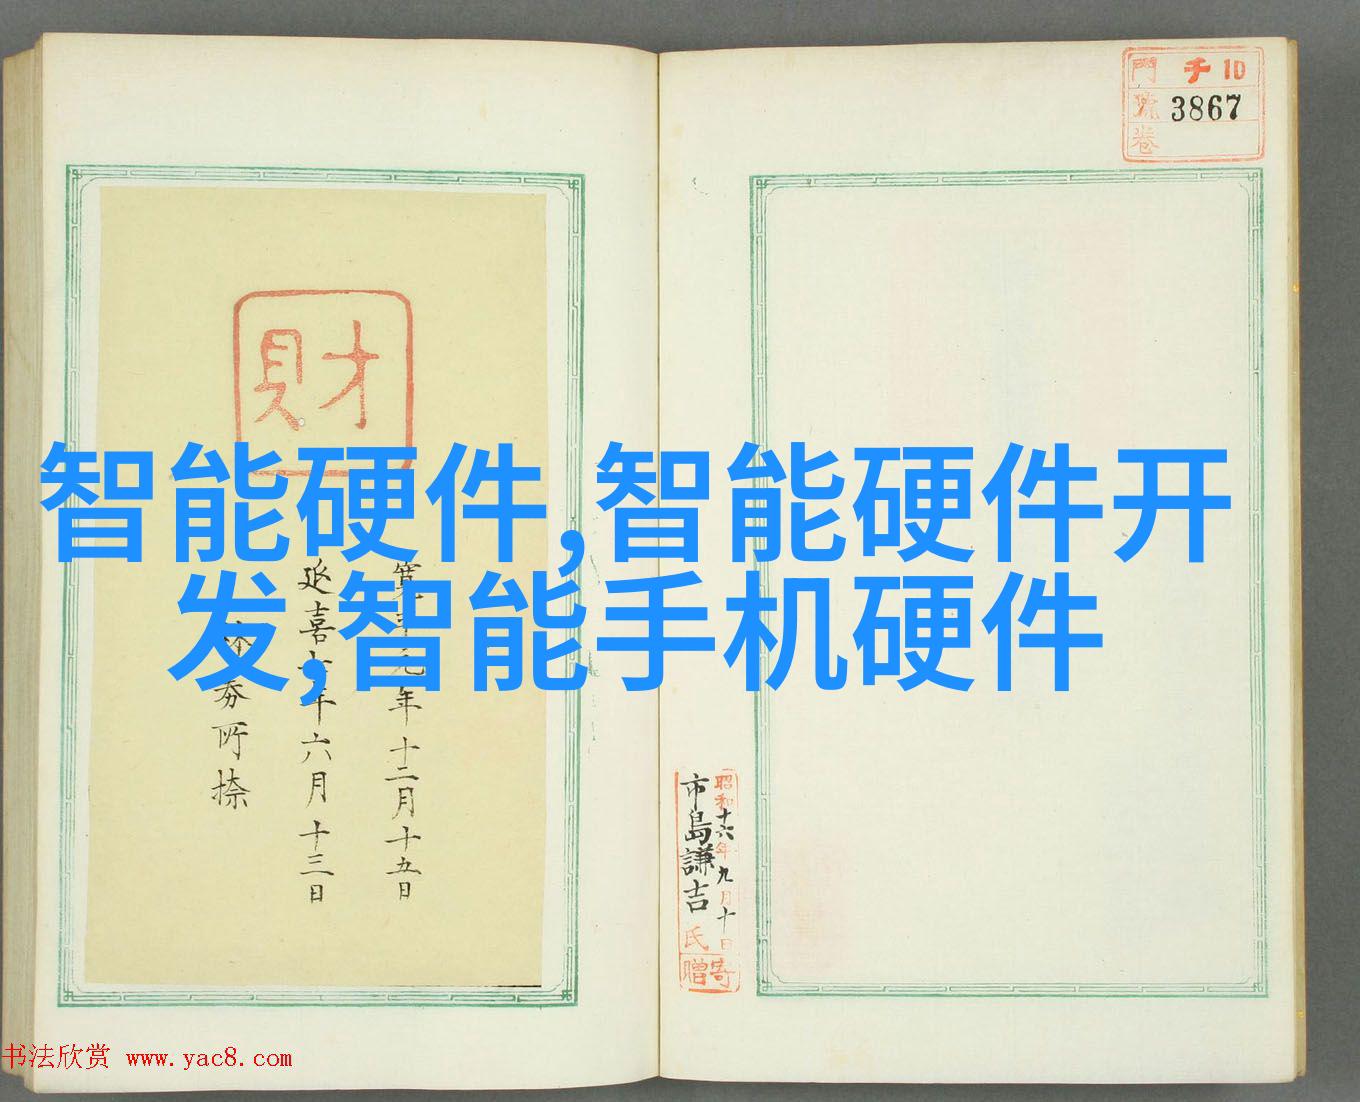 門 チ 10
號 3867
卷
財
智能硬件,智能硬件开
发,智能手机硬件
年十二月十五日
延喜七年六月十三日
券所捺
昭和十六年九月十日
市島謙吉氏
寄贈
书法欣赏 www.yac8.com